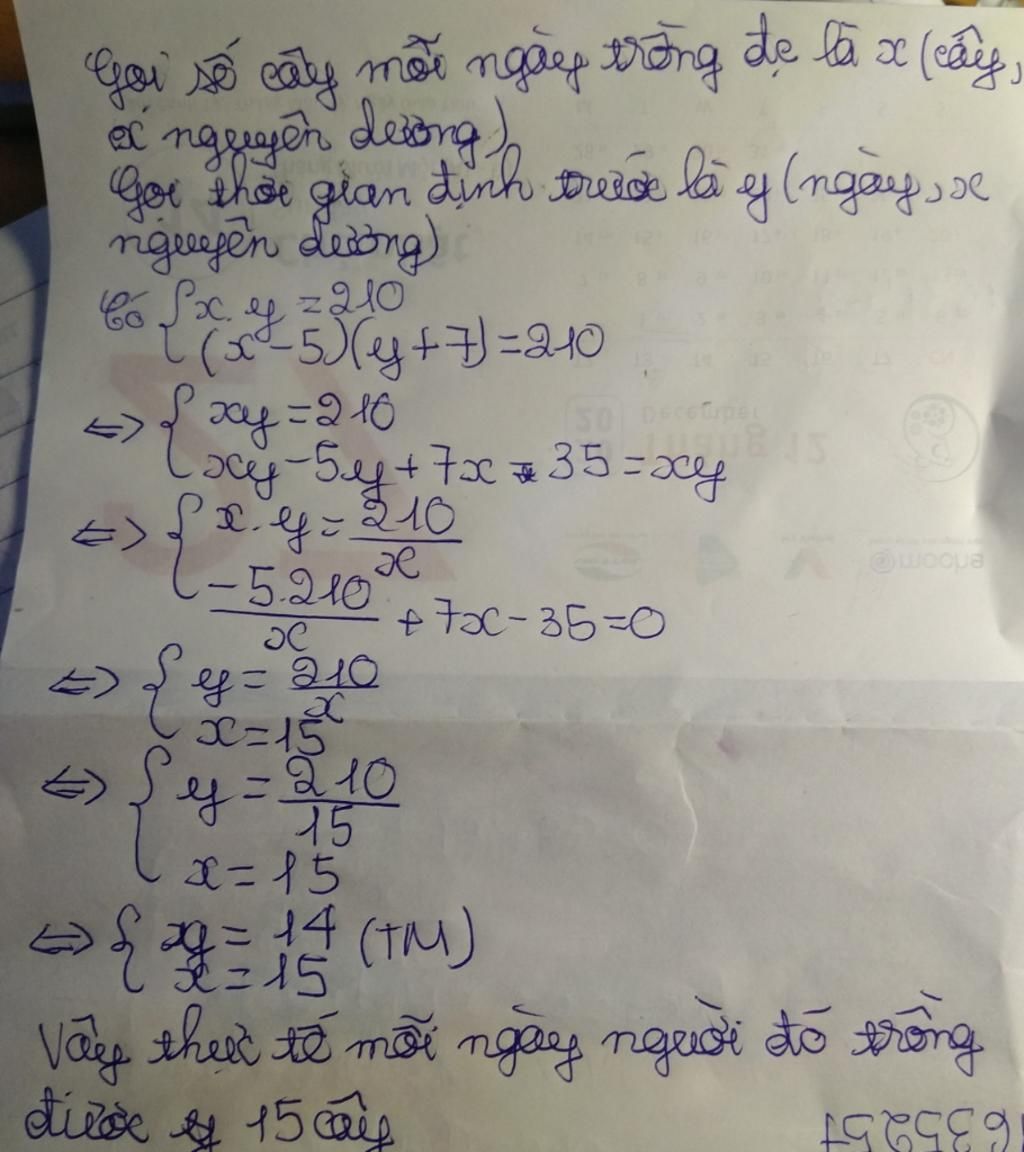 Gọi số cây mỗi ngày trồng đc là x (cây,
x nguyên dương)
Gọi thời gian định trước là y (ngày, x
nguyên dương)
Có { x.y = 210
(x-5)(y+7) = 210
<=> { xy = 210
xy - 5y + 7x - 35 = xy
<=> { x.y = 210/x
-5.210/x + 7x - 35 = 0
<=> { y = 210/x
x = 15
<=> { y = 210/15
x = 15
<=> { y = 14 (TM)
x = 15
Vậy thực tế mỗi ngày người đó trồng
được 15 cây
20 December
Tháng 12
mocha